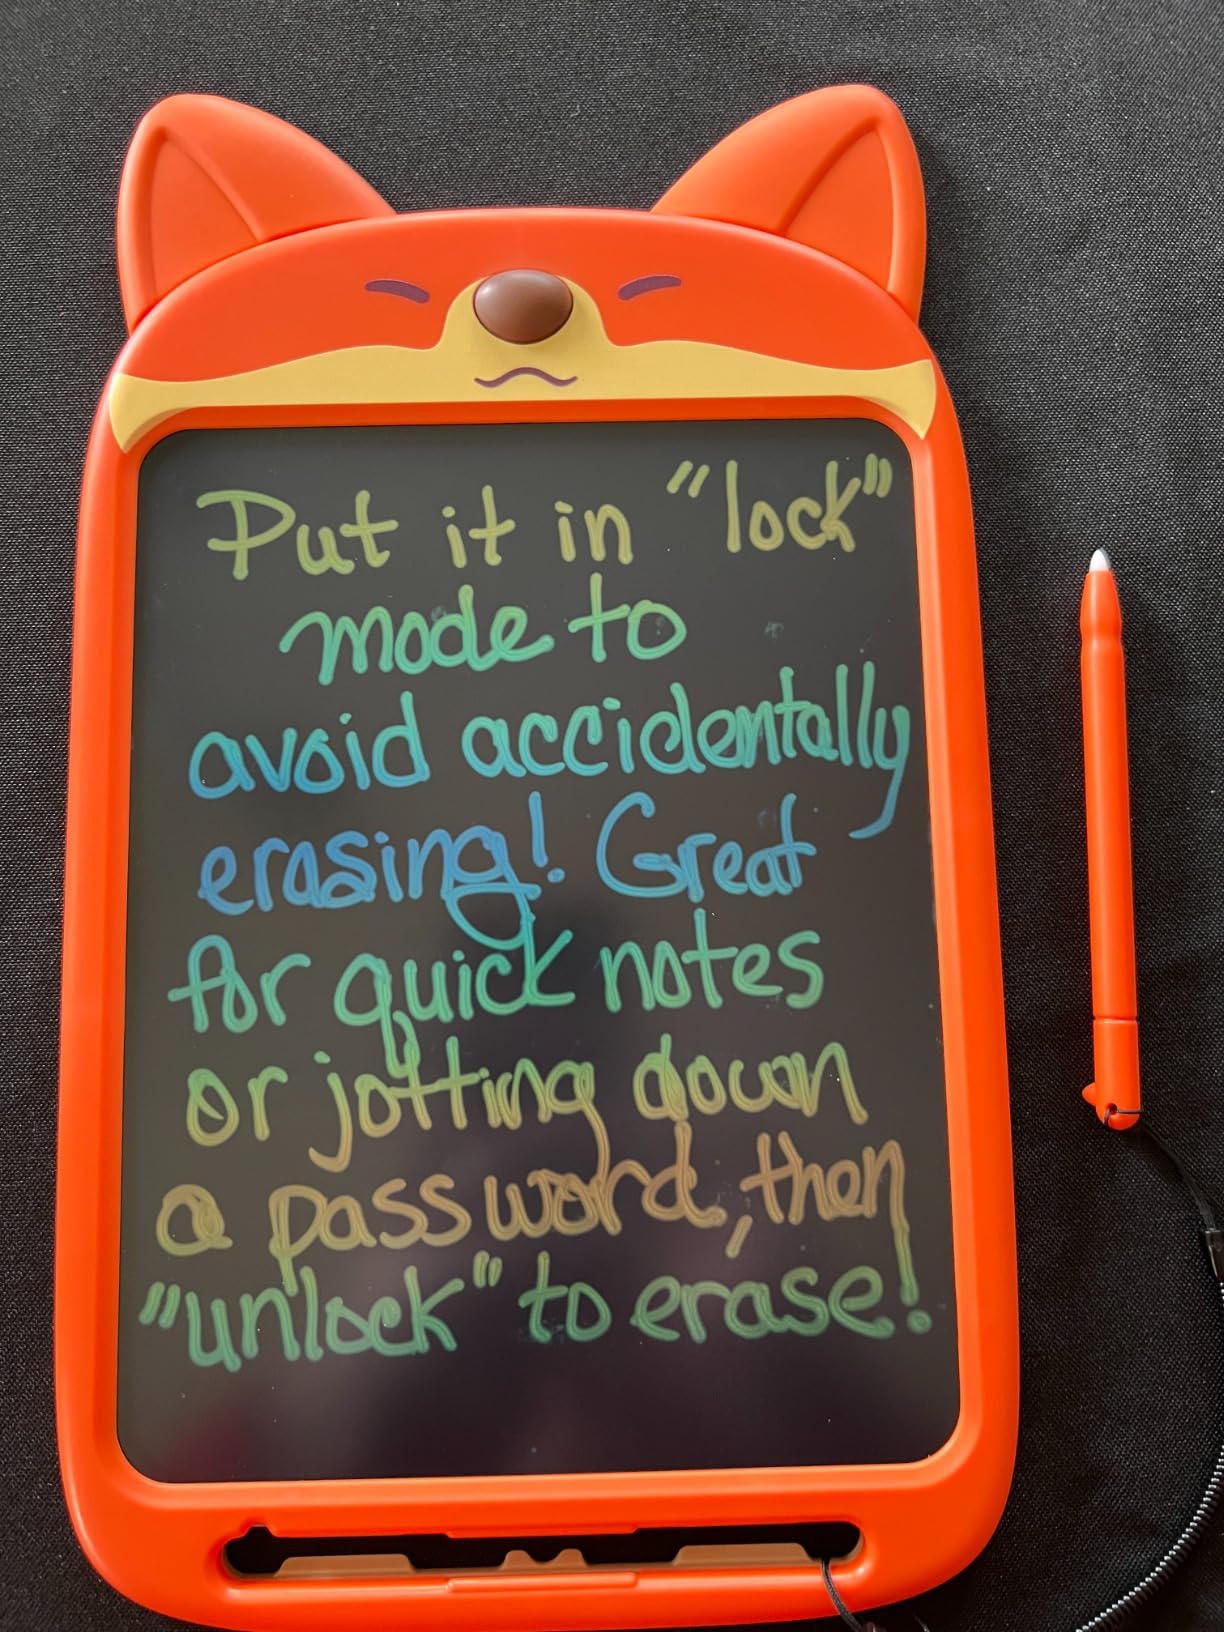 Put it in "lock"
mode to
avoid accidentally
erasing! Great
for quick notes
or jotting down
a password, then
"unlock" to erase!